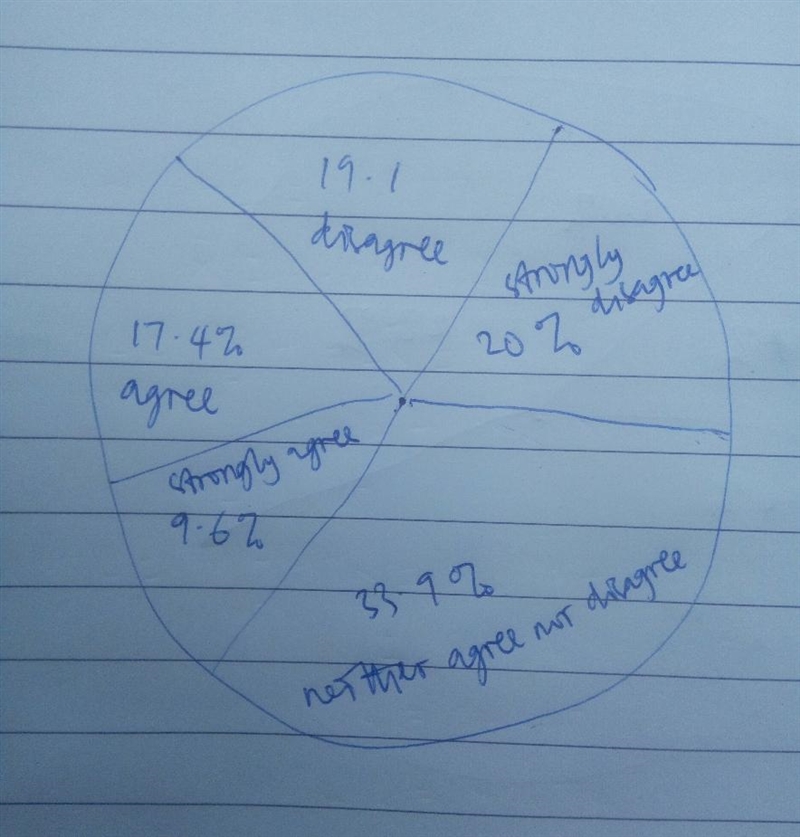 19.1
disagree
strongly
disagree
20%
17.4%
agree
strongly agree
9.6%
33.9%
neither agree nor disagree